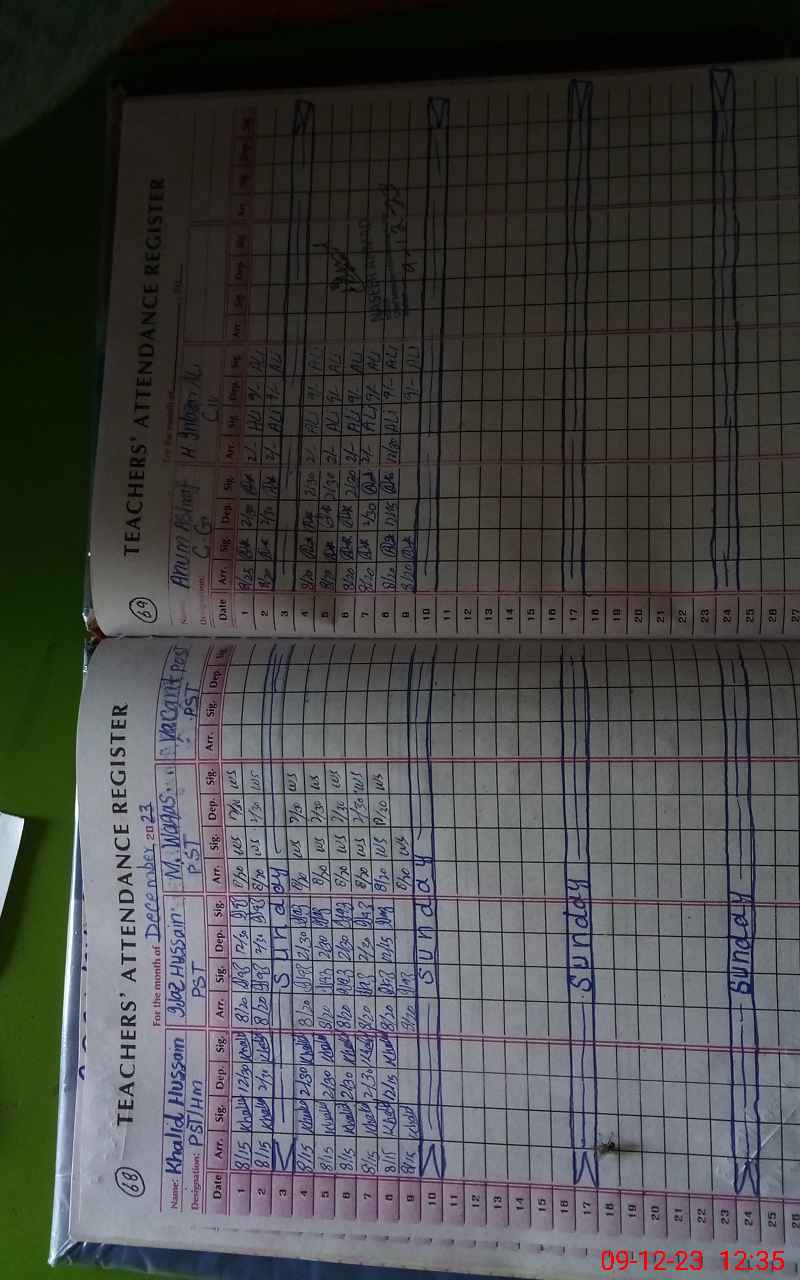 68
TEACHERS' ATTENDANCE REGISTER
For the month of December 2023
Name: Khalid Hussain Ijaz Hussain M. Waqas. Vacant Post
Designation: PST/Hm PST PST PST
Date Arr. Sig. Dep. Sig. Arr. Sig. Dep. Sig. Arr. Sig. Dep. Sig. Arr. Sig. Dep. Sig.
1 8/15 Khalid 12/30 Khalid 8/20 12/30 8/20 WS 12/30 WS
2 8/15 Khalid 2/30 Khalid 8/20 2/30 8/20 WS 2/30 WS
3 Sunday
4 8/15 Khalid 2/30 Khalid 8/20 2/30 8/20 WS 2/30 WS
5 8/15 Khalid 2/30 Khalid 8/20 2/30 8/20 WS 2/30 WS
6 8/15 Khalid 2/30 Khalid 8/20 2/30 8/20 WS 2/30 WS
7 8/15 Khalid 2/30 Khalid 8/20 2/30 8/20 WS 2/30 WS
8 8/15 Khalid 12/15 Khalid 8/20 12/15 8/20 WS 12/20 WS
9 8/15 Khalid 8/20 8/20 WS
10 Sunday
11
12
13
14
15
16
17 Sunday
18
19
20
21
22
23
24 Sunday
25
26
69
TEACHERS' ATTENDANCE REGISTER
For the month of 20
Name: Anum Ashraf
Designation: C.G C.IV
Date Arr. Sig. Dep. Sig. Arr. Sig. Dep. Sig. Arr. Sig. Dep. Sig. Arr. Sig. Dep. Sig.
1 8/25 2/30 2/- ALI 9/- ALI
2 8/20 2/30 2/- ALI 9/- ALI
3
4 8/20 2/30 2/- ALI 9/- ALI
5 8/20 2/30 2/- ALI 9/- ALI
6 8/20 2/30 2/- ALI 9/- ALI
7 8/20 2/30 2/- ALI 9/- ALI
8 8/20 12/15 12/30 ALI 9/- ALI
9 8/20 9/- ALI
10
11
12
13
14
15
16
17
18
19
20
21
22
23
24
25
26
27
09-12-23 12:35